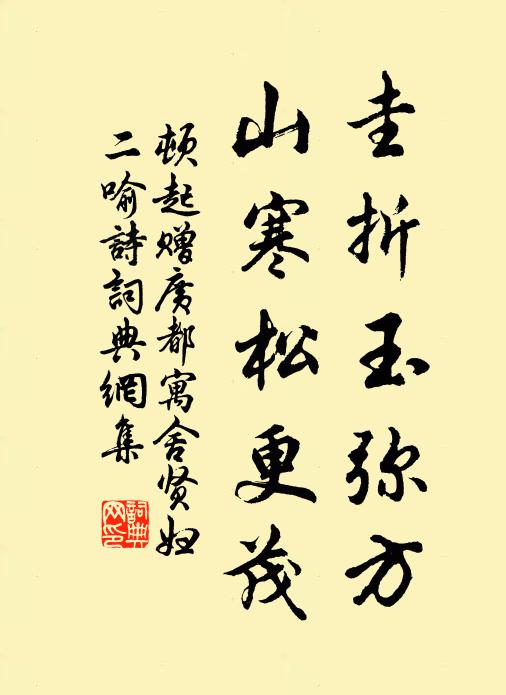 圭折玉弥方
山寒松更茂
顿起赠廣都寓舍贤妇
二喻詩詞典網集
詞典
网印